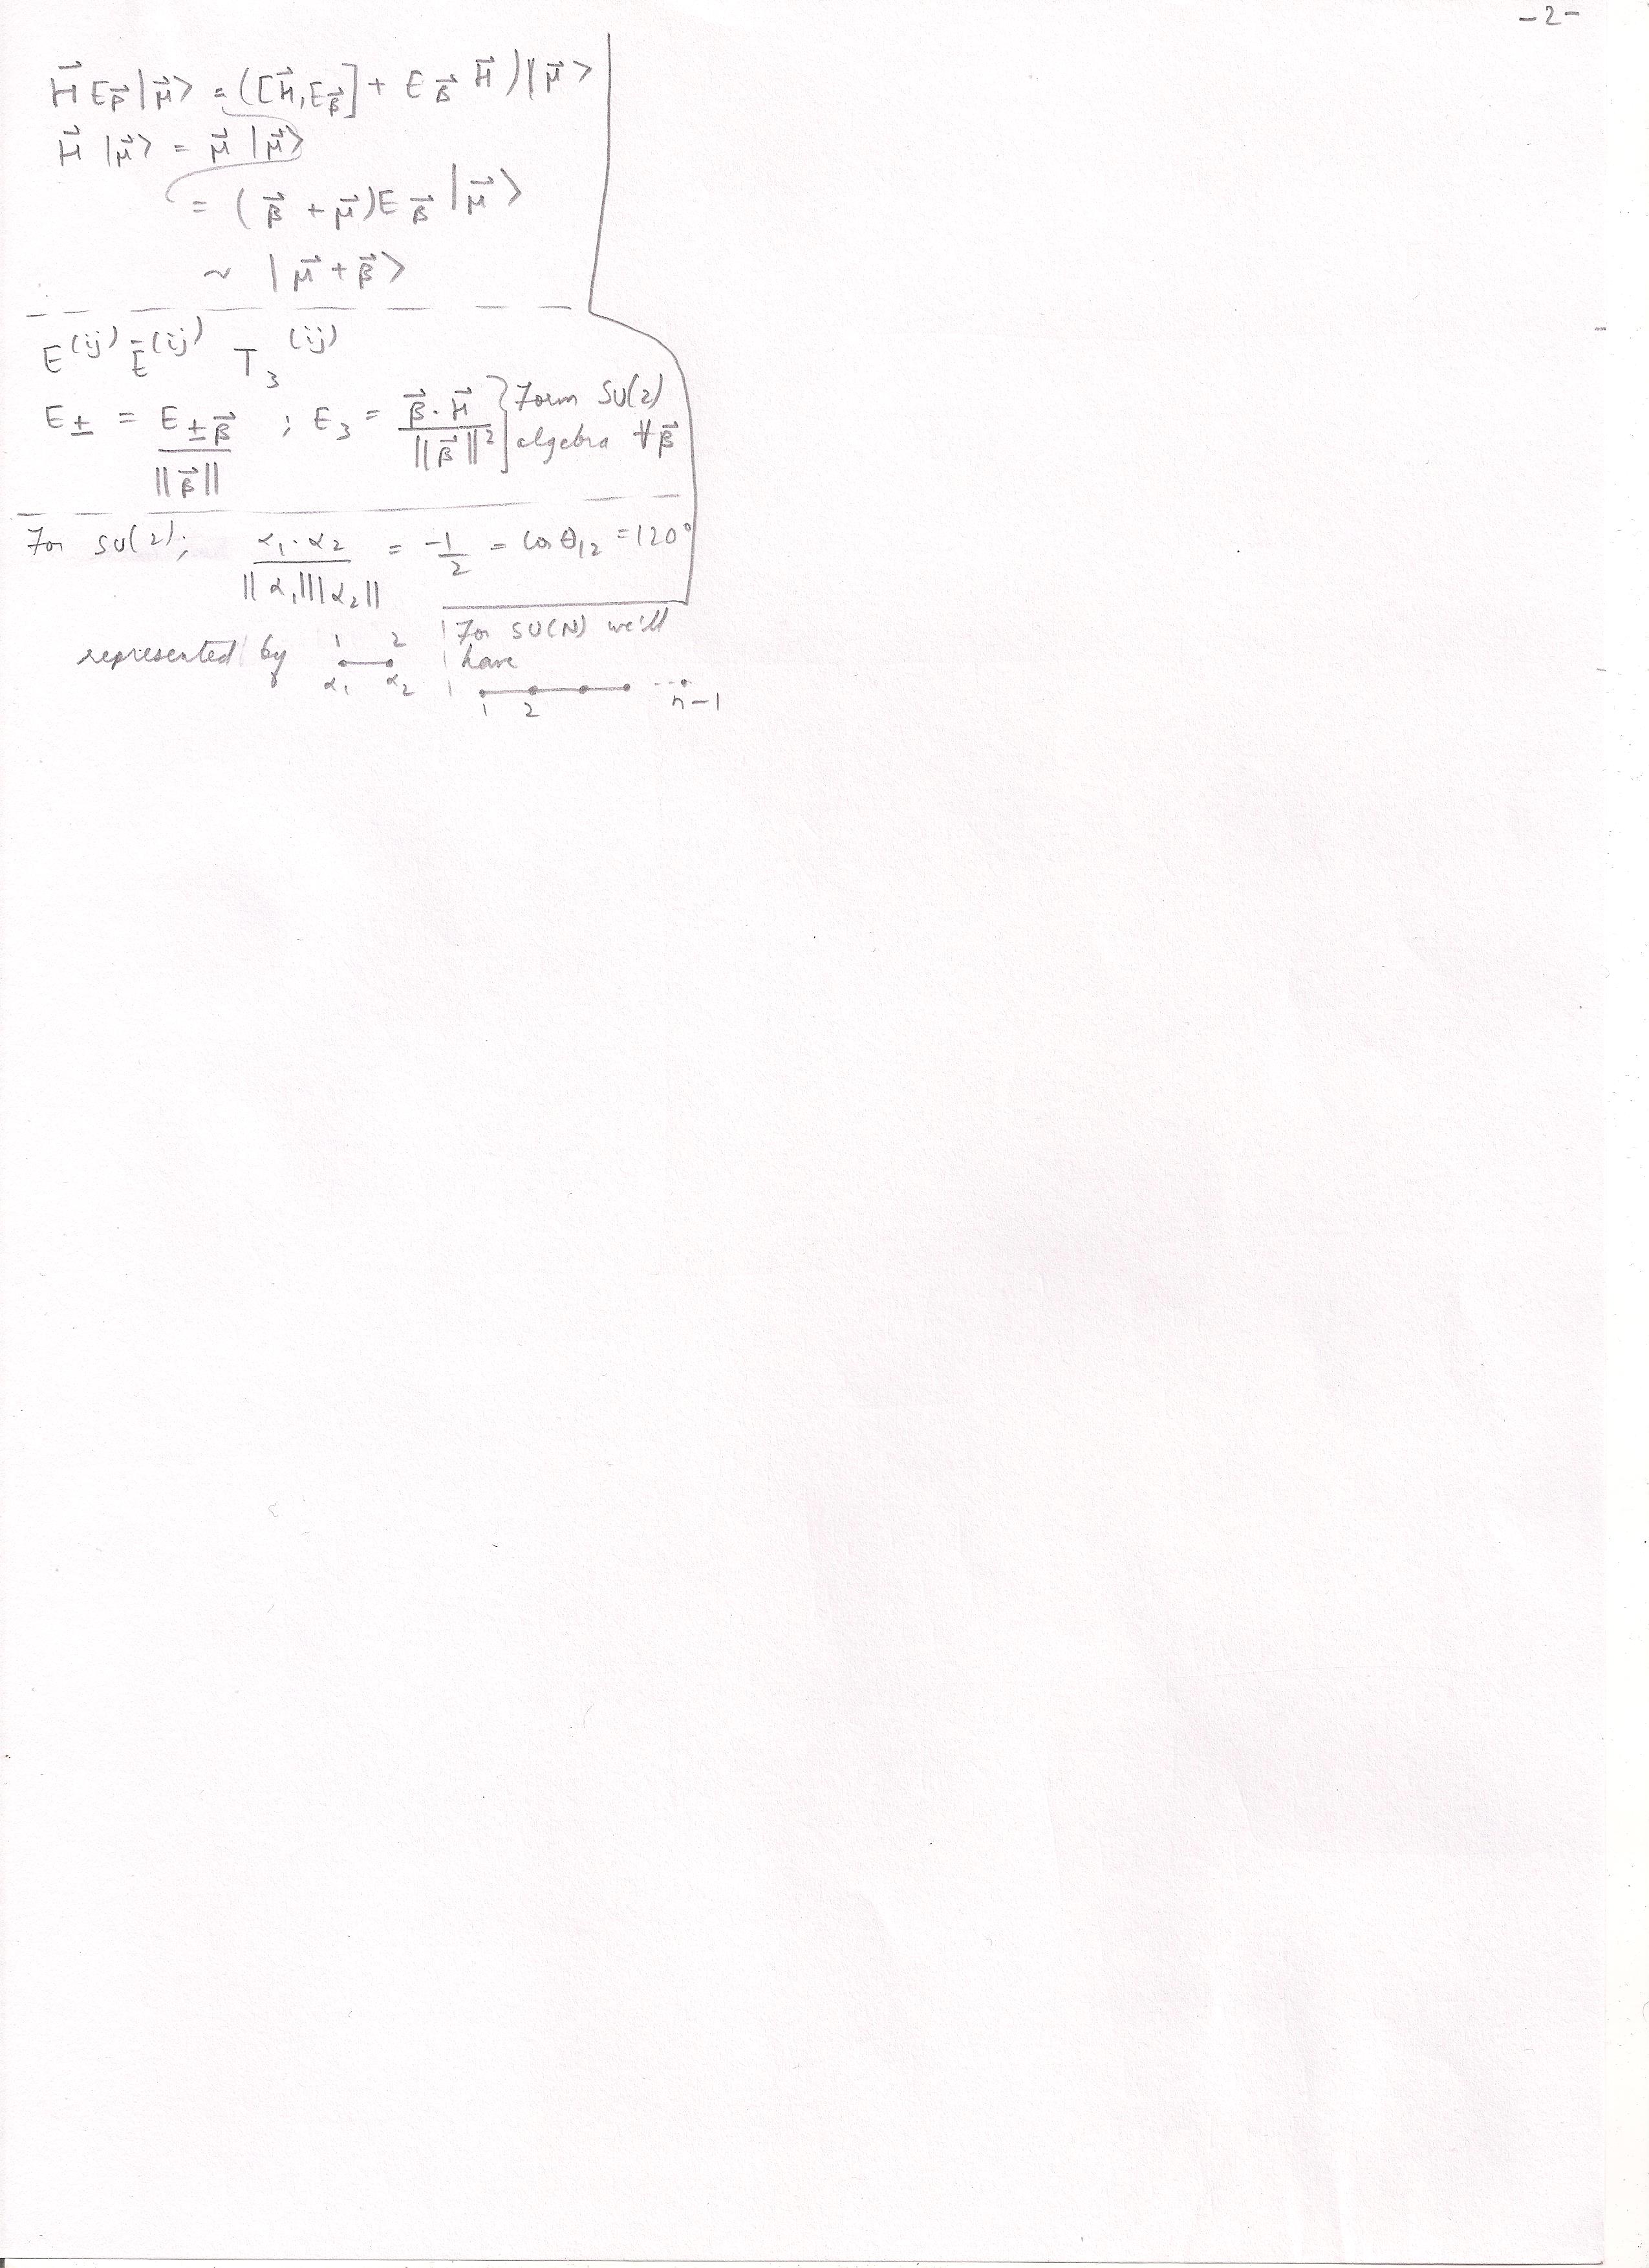 -2-
H⃗ E_β⃗ |μ⃗> = ([H⃗, E_β⃗] + E_β⃗ H⃗)|μ⃗>
H⃗ |μ⃗> = μ⃗ |μ⃗>
= (β⃗ + μ⃗) E_β⃗ |μ⃗>
~ |μ⃗ + β⃗>
E^(ij) E^-(ij) T_3^(ij)
E_± = E_±β⃗ / ||β⃗|| ; E_3 = β⃗·H⃗ / ||β⃗||² } Form SU(2) algebra ∀ β⃗
For SU(2); α_1·α_2 / ||α_1|| ||α_2|| = -1/2 = cos θ_12 = 120°
represented by 1 2 α_1 α_2
For SU(N) we'll
have
1 2 ... n-1